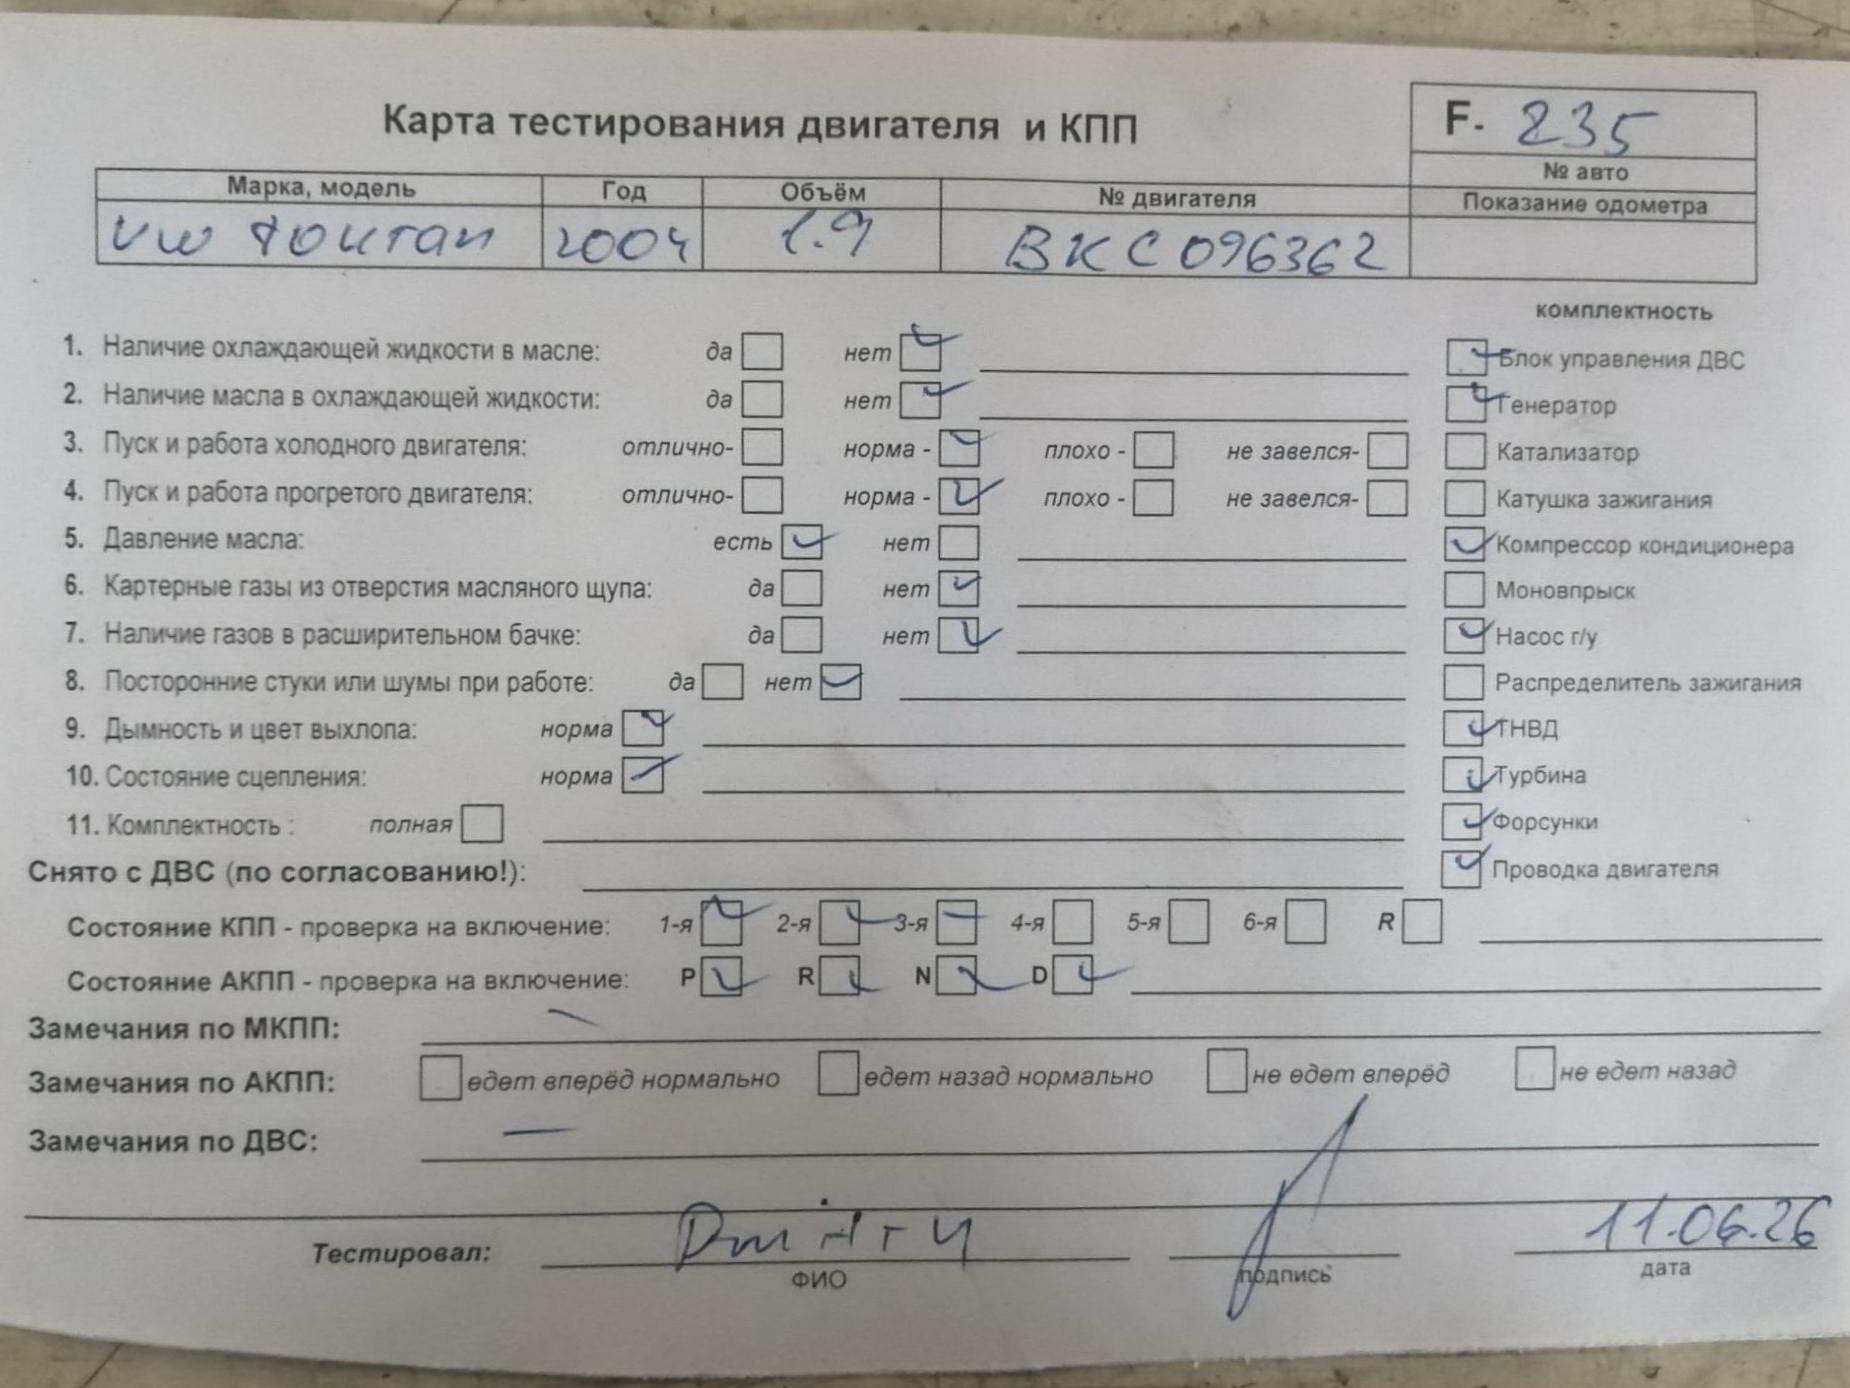 Карта тестирования двигателя и КПП
F- 235
№ авто
Марка, модель Год Объём № двигателя Показание одометра
VW Тоиган 2004 1.9 BKC 096362
комплектность
1. Наличие охлаждающей жидкости в масле: да нет Блок управления ДВС
2. Наличие масла в охлаждающей жидкости: да нет Генератор
3. Пуск и работа холодного двигателя: отлично- норма - плохо - не завелся- Катализатор
4. Пуск и работа прогретого двигателя: отлично- норма - плохо - не завелся- Катушка зажигания
5. Давление масла: есть нет Компрессор кондиционера
6. Картерные газы из отверстия масляного щупа: да нет Моновпрыск
7. Наличие газов в расширительном бачке: да нет Насос г/у
8. Посторонние стуки или шумы при работе: да нет Распределитель зажигания
9. Дымность и цвет выхлопа: норма ТНВД
10. Состояние сцепления: норма Турбина
11. Комплектность : полная Форсунки
Снято с ДВС (по согласованию!): Проводка двигателя
Состояние КПП - проверка на включение: 1-я 2-я 3-я 4-я 5-я 6-я R
Состояние АКПП - проверка на включение: P R N D
Замечания по МКПП: –
Замечания по АКПП: едет вперёд нормально едет назад нормально не едет вперёд не едет назад
Замечания по ДВС: –
Тестировал: 11.06.26
ФИО подпись дата